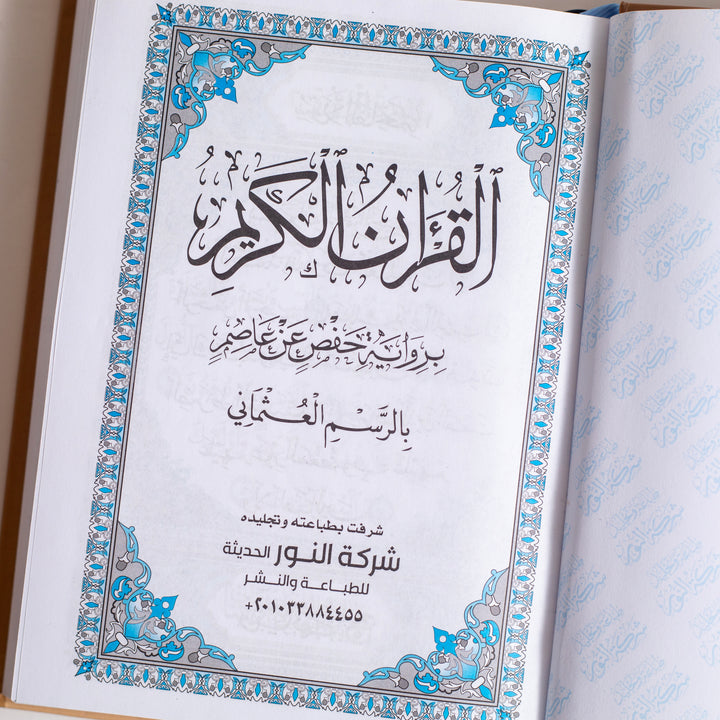 ٱلْقُرْءَانُ ٱلْكَرِيمُ
بِرِوَايَةِ حَفْصٍ عَنْ عَاصِمٍ
بِالرَّسْمِ الْعُثْمَانِي
شرفت بطباعته وتجليده
شركة النور الحديثة
للطباعة والنشر
+٢٠١٠٣٣٨٨٤٤٥٥